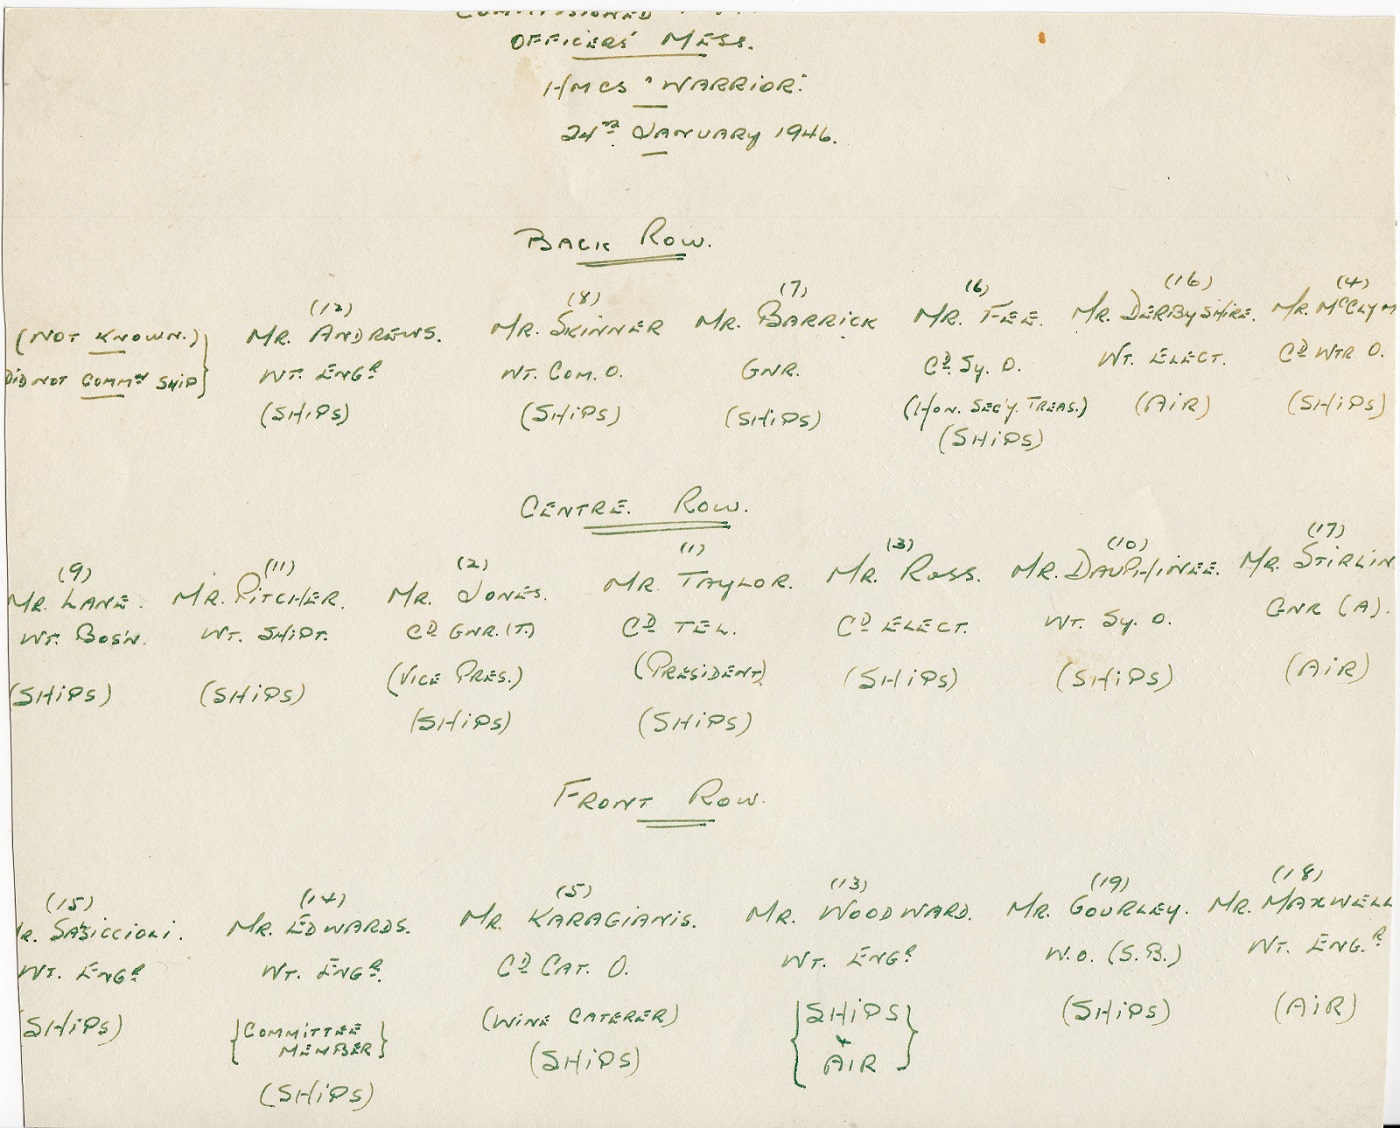 COMMISSIONED
OFFICERS' MESS.
HMCS "WARRIOR."
24TH JANUARY 1946.
BACK ROW.
(12) (8) (7) (6) (16) (4)
(NOT KNOWN.) MR. ANDREWS. MR. SKINNER MR. BARRICK MR. FEE. MR. DERBYSHIRE. MR. McCLYM
DID NOT COMMN SHIP WT. ENGR WT. COM. O. GNR. CD. SY. O. WT. ELECT. CD WTR O.
(SHIPS) (SHIPS) (SHIPS) (HON. SEC'Y. TREAS.) (AIR) (SHIPS)
(SHIPS)
CENTRE. ROW.
(9) (11) (2) (1) (3) (10) (17)
MR. LANE. MR. PITCHER. MR. JONES. MR. TAYLOR. MR. ROSS. MR. DAUPHINEE. MR. STIRLIN
WT. BOS'N. WT. SHIPT. CD GNR. (T.) CD TEL. CD ELECT. WT. SY. O. GNR (A).
(SHIPS) (SHIPS) (VICE PRES.) (PRESIDENT) (SHIPS) (SHIPS) (AIR)
(SHIPS) (SHIPS)
FRONT ROW.
(15) (14) (5) (13) (19) (18)
MR. EDWARDS. MR. KARAGIANIS. MR. WOODWARD. MR. GOURLEY. MR. MAXWELL
WT. ENGR WT. ENGR. CD CAT. O. WT. ENGR. W.O. (S.B.) WT. ENG.R
(SHIPS) {COMMITTEE (WINE CATERER) {SHIPS (SHIPS) (AIR)
MEMBER} (SHIPS) + AIR}
(SHIPS)